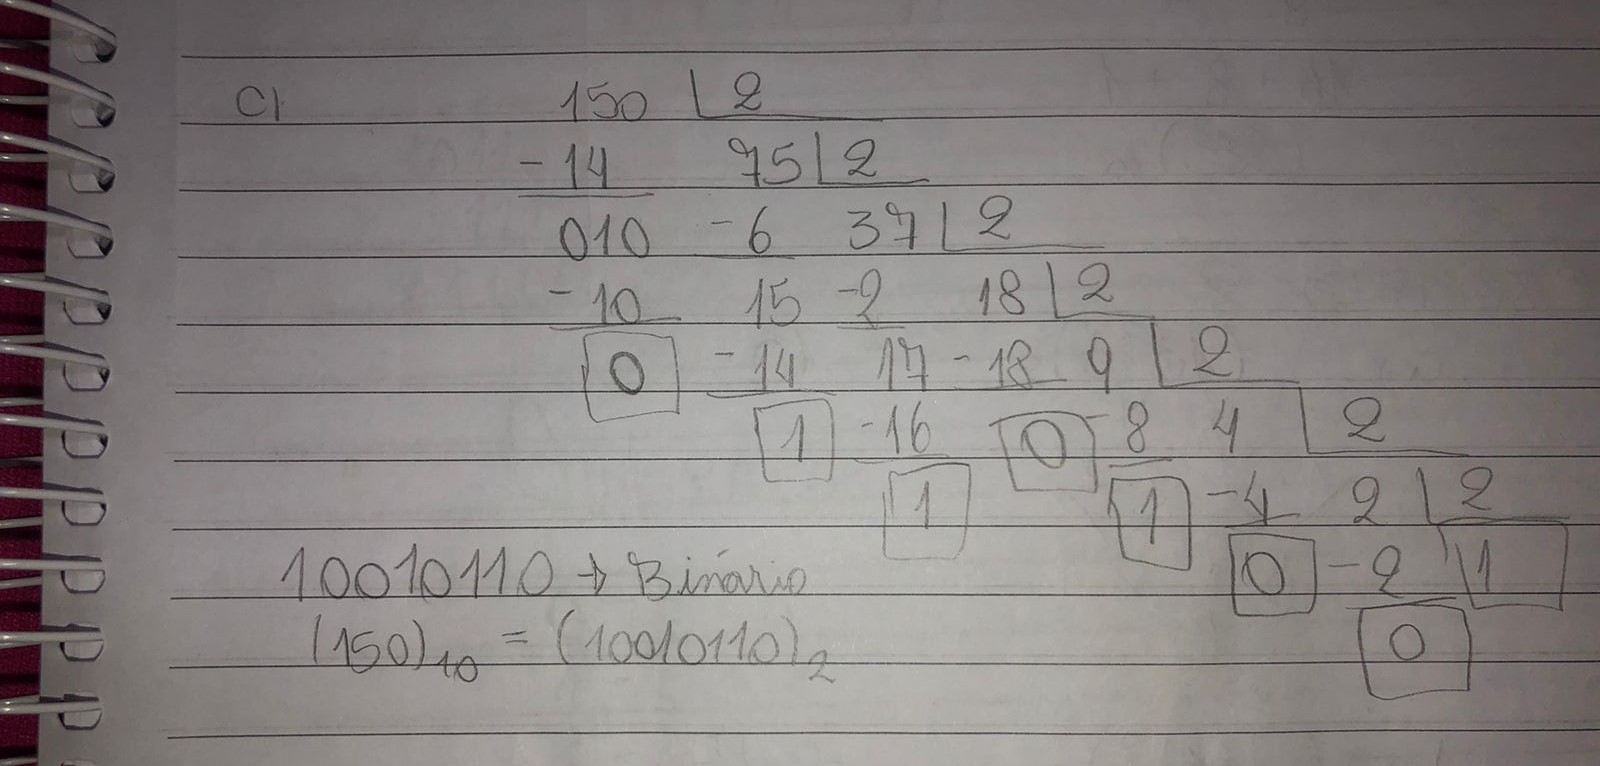 C) 150 2
- 14 75 2
010 - 6 37 2
- 10 15 - 2 18 2
0 - 14 17 - 18 9 2
1 - 16 0 - 8 4 2
1 1 - 4 2 2
10010110 → Binário 0 - 2 1
(150)10 = (10010110)2 0